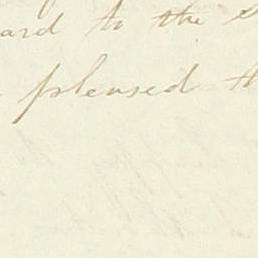 ard to the
pleased th